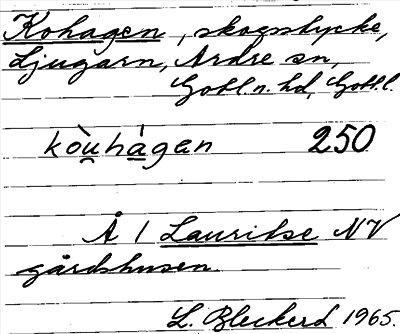 Kohagen, skogsstycke,
Ljugarn, Ardre sn,
Gotl. n. hd, Gotl. l.
kòu̯hàgan 250
Å 1 Lauritse NV
gårdshusen
L. Bleckerd 1965.